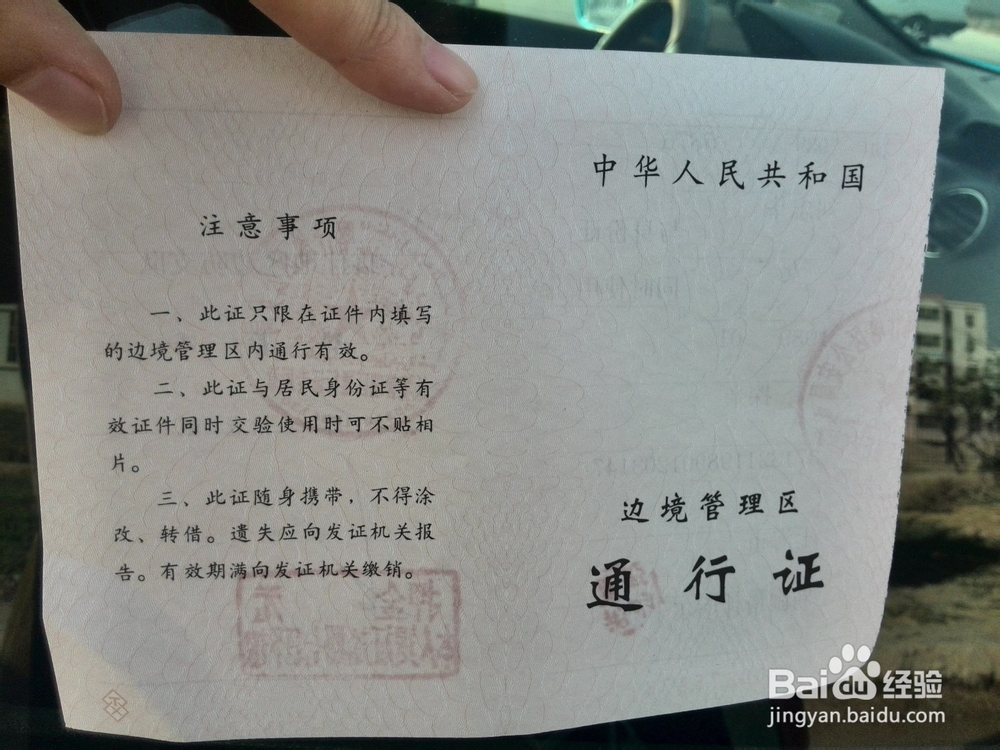 注意事项
一、此证只限在证件内填写
的边境管理区内通行有效。
二、此证与居民身份证等有
效证件同时交验使用时可不贴相
片。
三、此证随身携带，不得涂
改、转借。遗失应向发证机关报
告。有效期满向发证机关缴销。
中华人民共和国
边境管理区
通行证
Baidu经验
jingyan.baidu.com